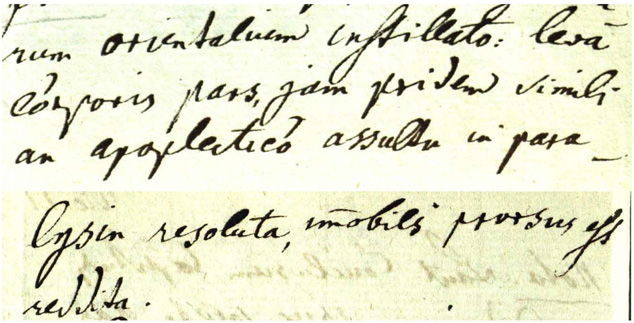 rum orientalium instillato: leva
corporis pars, jam pridem simili
an apoplectico assultu in para_
lysin resoluta, im̄obilis prorsus est
reddita.